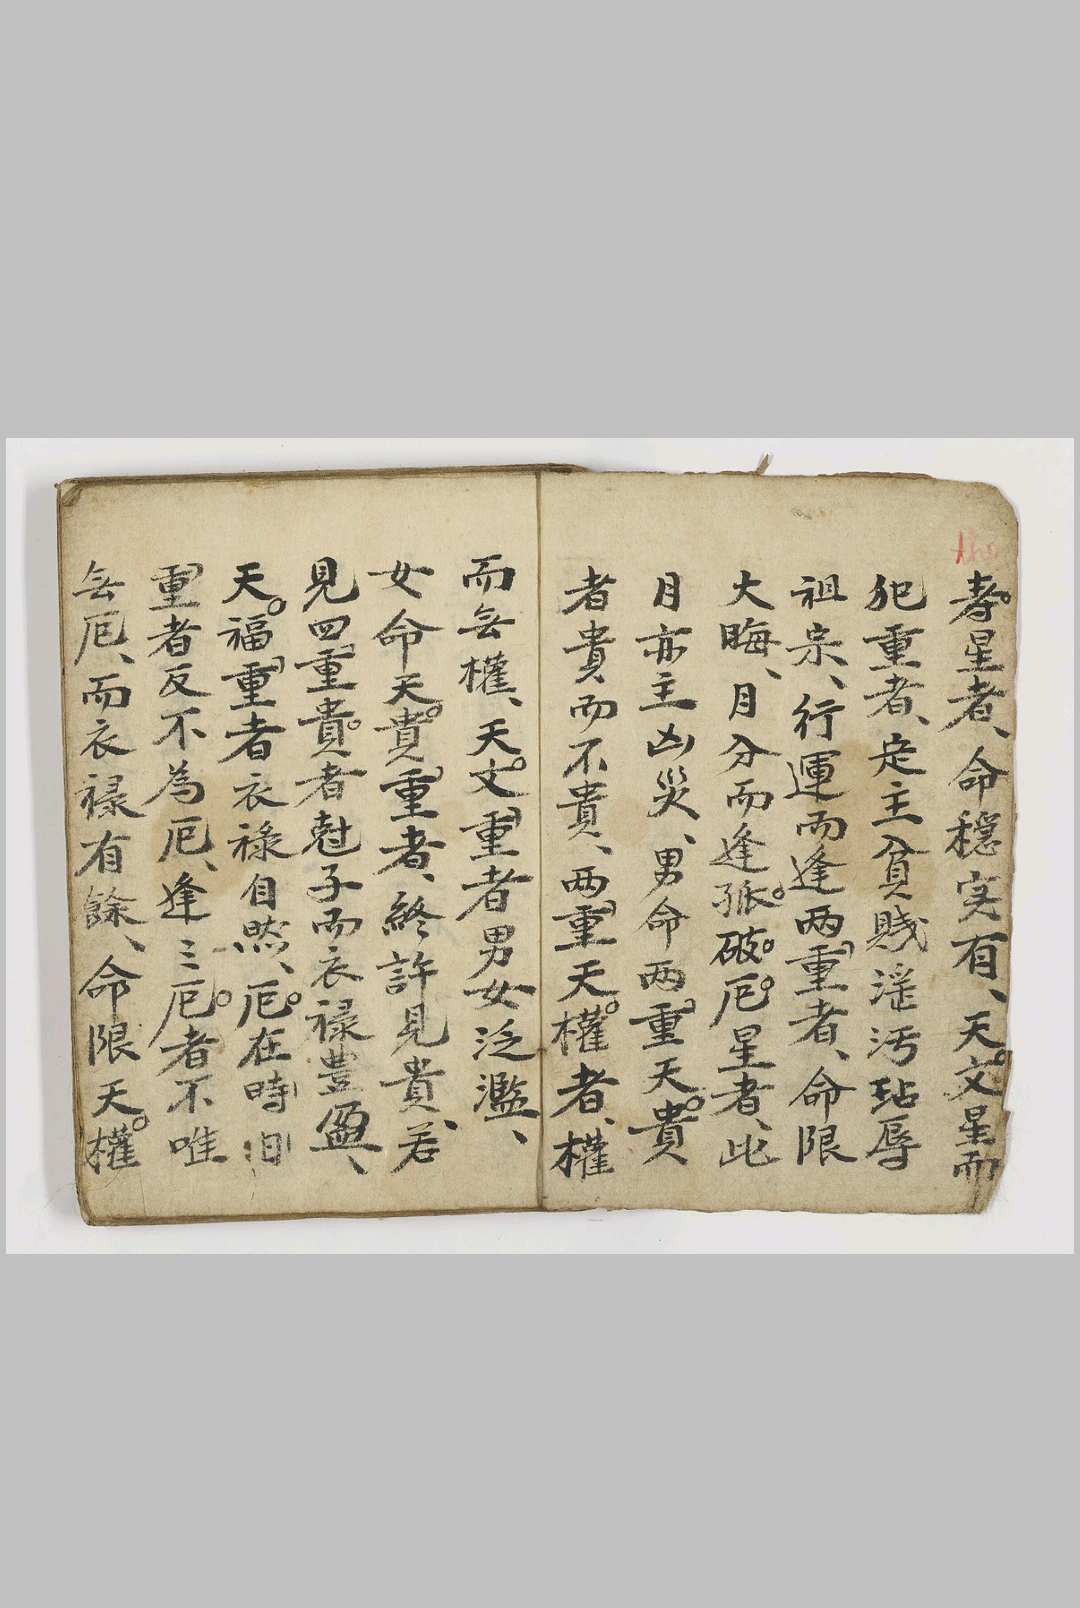 孝星者、命穏実有、天文星而
犯重者、定主貧賤滛污玷辱
祖宗、行運而逢两重者、命限
大晦、月分而逢孤破厄星者、此
月亦主凶災、男命两重天貴
者貴而不貴、两重天權者、權
而𠅤權、天文重者男女泛濫、
女命天貴重者、終許見貴、若
見四重貴者尅子而衣禄豊盈、
天福重者衣祿自然、厄在時日
重者反不為厄、逢三厄者不唯
𠅤厄、而衣禄有餘、命限天權